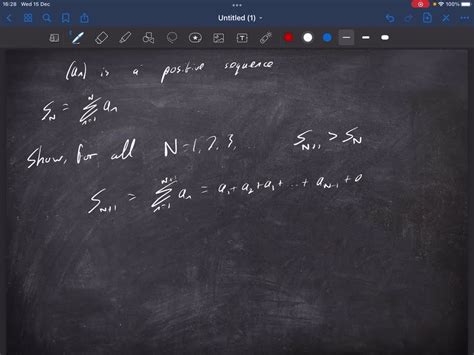 16:28 Wed 15 Dec
100%
Untitled (1)
(aₙ) is a positive sequence
S_N = ∑_{n=1}^{N} aₙ
Show, for all N=1,2,3, S_{N+1} > S_N
S_{N+1} = ∑_{n=1}^{N+1} aₙ = a₁+a₂+a₃+...+a_{N-1}+a